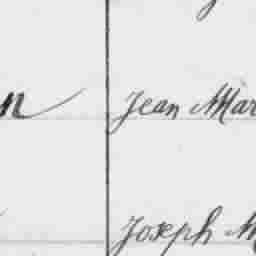 n Jean Mar
Joseph M